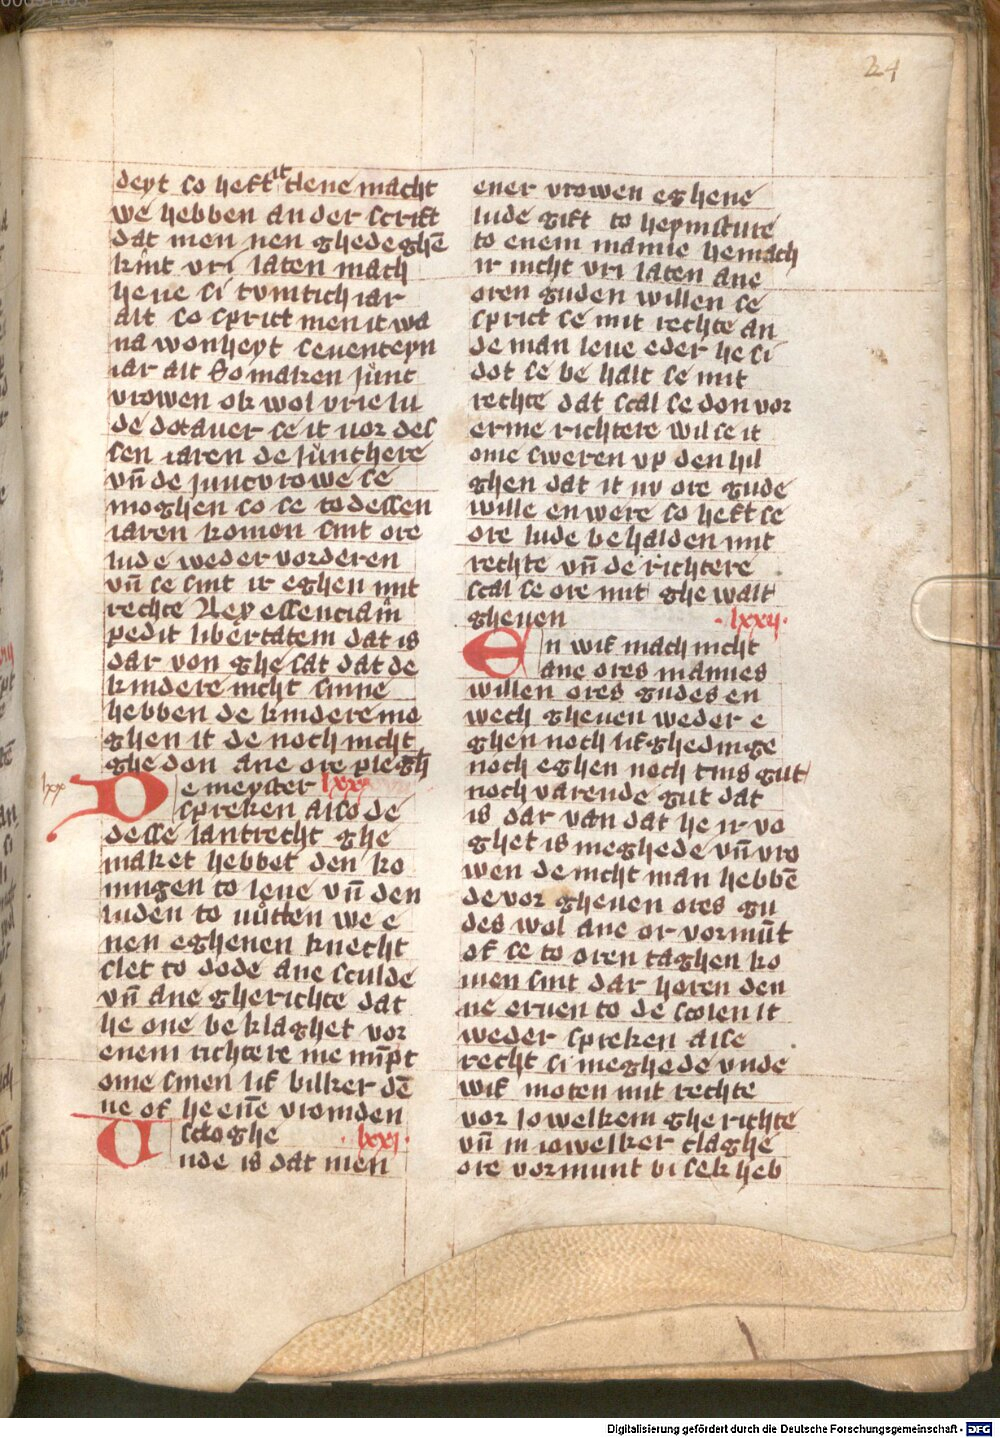 24
deyt so heft it nene macht
we hebben an der scrift
dat men nen ghedeghē
kint vri laten mach
heue si tvintich iar
alt so sprict men it wa
na wonheyt seuenteyn
iar alt So maken iunc
vrowen ok wol vrie lu
de dot auer se it vor des
sen iaren de iuncthere
vn̄ de iuncvrowe se
moghen so se to dessen
iaren komen sint ore
lude weder vorderen
vn̄ se sint ir eghen mit
rechte Ney essencia im
pedit libertatem dat is
dar von ghe sat dat de
kindere nicht sinne
hebben de kindere mo
ghen it de noch nicht
ghe don ane ore plegh
lxx
De meyster lxx
spreken also de
desse lantrecht ghe
maket hebbet den ko
ningen to leue vn̄ den
luden to nutten we e
nen eghenen knecht
slet to dode ane sculde
vn̄ ane gherichte dat
he one be klaghet vor
enem richtere me nīpt
ome sinen lif bilker dē
ne of he enē vromden
scloghe lxxi
Unde is dat men
ener vrowen eghene
lude gift to heymsture
to enem manne he mach
ir nicht vri laten ane
oren guden willen se
sprict se mit rechte an
de man leue eder he si
dot se be halt se mit
rechte dat scal se don vor
erme richtere wil se it
ome sweren vp den hil
ghen dat it nv ore gude
wille en were so heft se
ore lude be halden mit
rechte vn̄ de richtere
scal se ore mit ghe walt
gheuen lxxii
En wif mach nicht
ane ores mannes
willen ores gudes en
wech gheuen weder e
ghen noch lif ghedinge
noch eghen noch tins gut
noch varende gut dat
is dar van dat he ir vo
ghet is meghede vn̄ vro
wen de nicht man hebbē
de vor gheuen ores gu
des wol ane or vormūt
of se to oren taghen ko
men sint dar horen den
ne eruen to de scolen it
weder spreken alse
recht si meghede vnde
wif moten mit rechte
vor iowelkem gherichte
vn̄ in iowelker claghe
ore vormunt bi sek heb
Digitalisierung gefördert durch die Deutsche Forschungsgemeinschaft - DFG